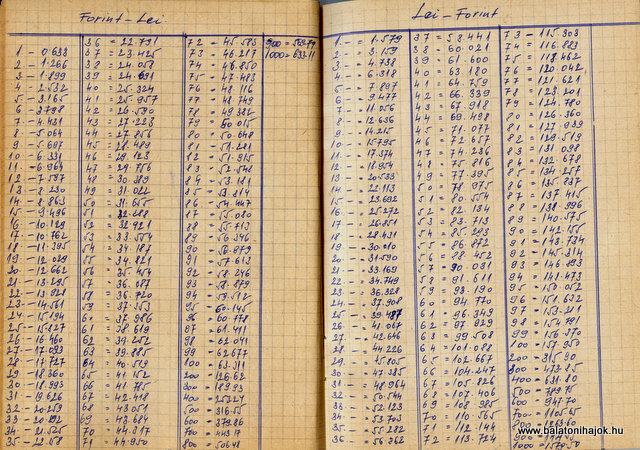 Forint - Lei
1 - 0.633
2 - 1.266
3 - 1.899
4 - 2.532
5 - 3.165
6 - 3.798
7 - 4.431
8 - 5.064
9 - 5.697
10 - 6.331
11 - 6.964
12 - 7.597
13 - 8.230
14 - 8.863
15 - 9.496
16 - 10.129
17 - 10.762
18 - 11.395
19 - 12.029
20 - 12.662
21 - 13.295
22 - 13.928
23 - 14.561
24 - 15.194
25 - 15.827
26 - 16.460
27 - 17.093
28 - 17.727
29 - 18.360
30 - 18.993
31 - 19.626
32 - 20.259
33 - 20.892
34 - 21.525
35 - 22.158
36 = 22.791
37 = 23.425
38 = 24.058
39 = 24.691
40 = 25.324
41 = 25.957
42 = 26.590
43 = 27.223
44 = 27.856
45 = 28.489
46 = 29.123
47 = 29.756
48 = 30.389
49 = 31.022
50 = 31.655
51 = 32.288
52 = 32.921
53 = 33.554
54 = 34.187
55 = 34.821
56 = 35.454
57 = 36.087
58 = 36.720
59 = 37.353
60 = 37.986
61 = 38.619
62 = 39.252
63 = 39.885
64 = 40.519
65 = 41.152
66 = 41.785
67 = 42.418
68 = 43.051
69 = 43.684
70 = 44.317
71 = 44.950
72 - 45.583
73 - 46.217
74 - 46.850
75 - 47.483
76 - 48.116
77 - 48.749
78 - 49.382
79 - 50.015
80 - 50.648
81 - 51.281
82 - 51.915
83 - 52.548
84 - 53.181
85 - 53.814
86 - 54.447
87 - 55.080
88 - 55.713
89 - 56.346
90 - 56.979
91 - 57.613
92 - 58.246
93 - 58.879
94 - 59.512
95 - 60.145
96 = 60.778
97 - 61.411
98 - 62.041
99 - 62.677
100 = 63.311
200 = 126.62
300 = 189.93
400 = 253.24
500 = 316.55
600 = 379.86
700 = 443.17
800 = 506.48
900 = 569.79
1000 = 633.11
Lei - Forint
1. - = 1.579
2. - = 3.159
3. - = 4.738
4. - = 6.318
5. - = 7.897
6. - = 9.477
7. - = 11.056
8. - = 12.636
9. - = 14.215
10. - = 15.795
11. - = 17.374
12. - = 18.954
13. - = 20.533
14. - = 22.113
15. - = 23.692
16. - = 25.272
17. - = 26.851
18. - = 28.431
19. - = 30.010
20. - = 31.590
21. - = 33.169
22. - = 34.749
23. - = 36.328
24. - = 37.908
25. - = 39.487
26. - = 41.067
27. - = 42.646
28. - = 44.226
29. - = 45.805
30. - = 47.385
31. - = 48.964
32. - = 50.544
33. - = 52.123
34. - = 53.703
35. - = 55.282
36. - = 56.862
37 = 58.441
38 = 60.021
39 = 61.600
40 = 63.180
41 = 64.759
42 = 66.339
43 = 67.918
44 = 69.498
45 = 71.077
46 = 72.657
47 = 74.236
48 = 75.816
49 = 77.395
50 = 78.975
51 = 80.554
52 = 82.134
53 = 83.713
54 = 85.293
55 = 86.872
56 = 88.452
57 = 90.031
58 = 91.611
59 = 93.190
60 = 94.770
61 = 96.349
62 = 97.929
63 = 99.508
64 = 101.088
65 = 102.667
66 = 104.247
67 = 105.826
68 = 107.406
69 = 108.985
70 = 110.565
71 = 112.144
72 = 113.724
73 - 115.303
74 = 116.883
75 = 118.462
76 = 120.042
77 = 121.621
78 = 123.201
79 = 124.780
80 = 126.360
81 = 127.939
82 = 129.519
83 = 131.098
84 = 132.678
85 = 134.257
86 = 135.837
87 = 137.415
88 = 138.996
89 = 140.575
90 = 142.155
91 = 143.734
92 = 145.314
93 = 146.893
94 = 141.473
95 = 150.052
96 = 151.632
97 = 153.211
98 = 154.791
99 = 156.370
100 = 157.950
200 = 315.90
300 = 473.85
400 = 631.80
500 = 789.75
600 = 947.70
700 = 1105.65
1000 = 1579.50
www.balatonihajok.hu